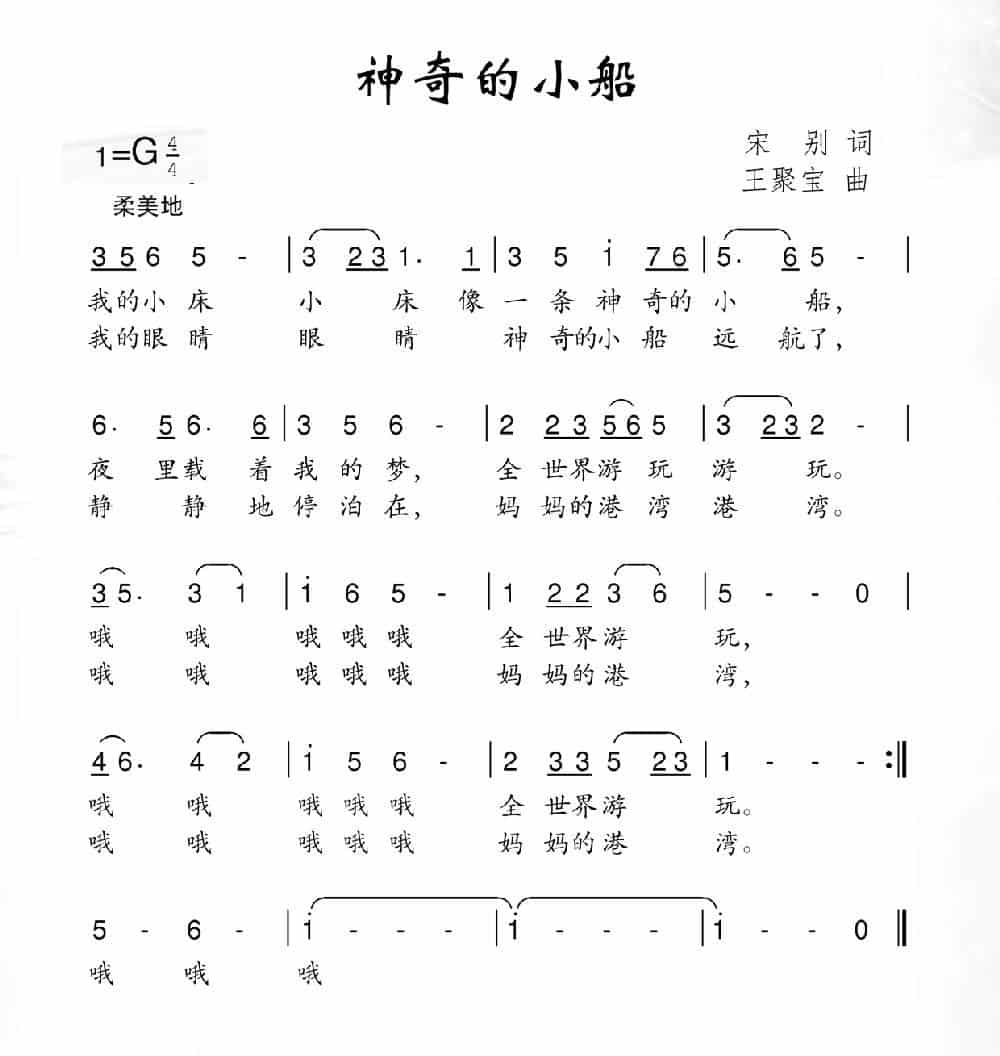 神奇的小船
1=G 4/4
宋 别 词
王聚宝 曲
柔美地
3 5 6 5 - | 3 2 3 1. 1 | 3 5 i 7 6 | 5. 6 5 - |
我的小床 小 床 像 一 条 神 奇的 小 船,
我的眼睛 眼 睛 神 奇的小 船 远 航了,
6. 5 6. 6 | 3 5 6 - | 2 2 3 5 6 5 | 3 2 3 2 - |
夜 里载 着 我 的 梦, 全 世界游 玩 游 玩。
静 静 地 停 泊 在, 妈 妈的港 湾 港 湾。
3 5. 3 1 | i 6 5 - | 1 2 2 3 6 | 5 - - 0 |
哦 哦 哦 哦 哦 全 世界游 玩,
哦 哦 哦 哦 哦 妈 妈的港 湾,
4 6. 4 2 | i 5 6 - | 2 3 3 5 2 3 | 1 - - - :||
哦 哦 哦 哦 哦 全 世界游 玩。
哦 哦 哦 哦 哦 妈 妈的港 湾。
5 - 6 - | i - - - | i - - - | i - - 0 ||
哦 哦 哦